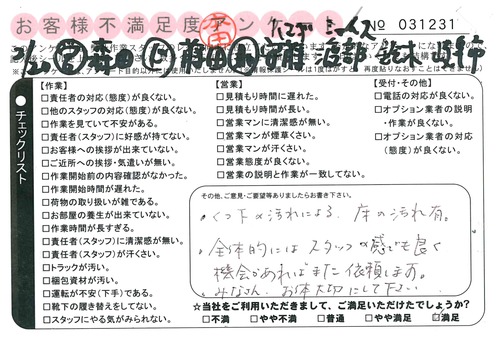 お客様不満足度アン
No 031231
チェックリスト
【作業】
□責任者の対応(態度)が良くない。
□他のスタッフの対応(態度)が良くない。
□作業を見ていて不安がある。
□責任者(スタッフ)に好感が持てない。
□お客様への挨拶が出来ていない。
□ご近所への挨拶・気遣いが無い。
□作業開始前の内容確認がなかった。
□作業開始時間が遅れた。
□荷物の取り扱いが雑である。
□お部屋の養生が出来ていない。
□作業時間が長すぎる。
□責任者(スタッフ)に清潔感が無い。
□責任者(スタッフ)が汗くさい。
□トラックが汚い。
□梱包資材が汚い。
□運転が不安(下手)である。
□靴下の履き替えをしてない。
□スタッフにやる気がみられない。
【営業】
□見積もり時間に遅れた。
□見積もり時間が長い。
□営業マンに清潔感が無い。
□営業マンが煙草くさい。
□営業マンが汗くさい。
□営業態度が良くない。
□営業の説明と作業が一致してない。
【受付・その他】
□電話の対応が良くない。
□オプション業者の説明
・作業が良くない。
□オプション業者の対応
(態度)が良くない。
その他、ご意見・ご要望等ありましたらお書き下さい。
・くつ下の汚れによる、床の汚れ有。
・全体的にはスタッフの感じも良く
機会があればまた依頼します。
みなさん、お体大切にして下さい
☆当社をご利用いただきまして、ご満足いただけたでしょうか?
□不満 □やや不満 □普通 □やや満足 □満足